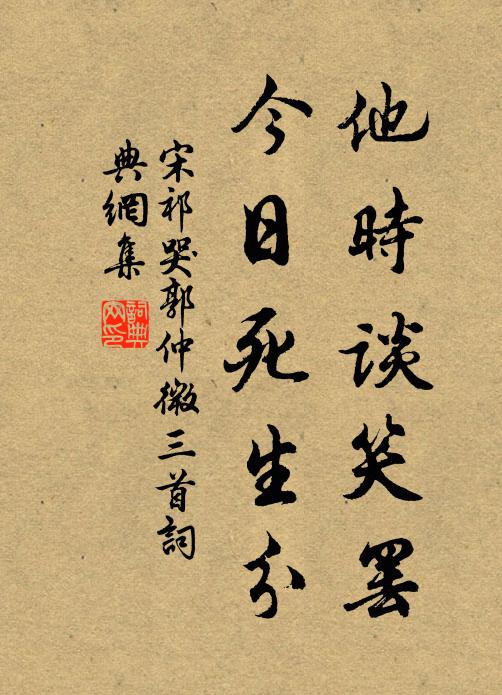 他時談笑罷
今日死生分
宋祁哭郭仲微三首詞
典網集
詞典網印